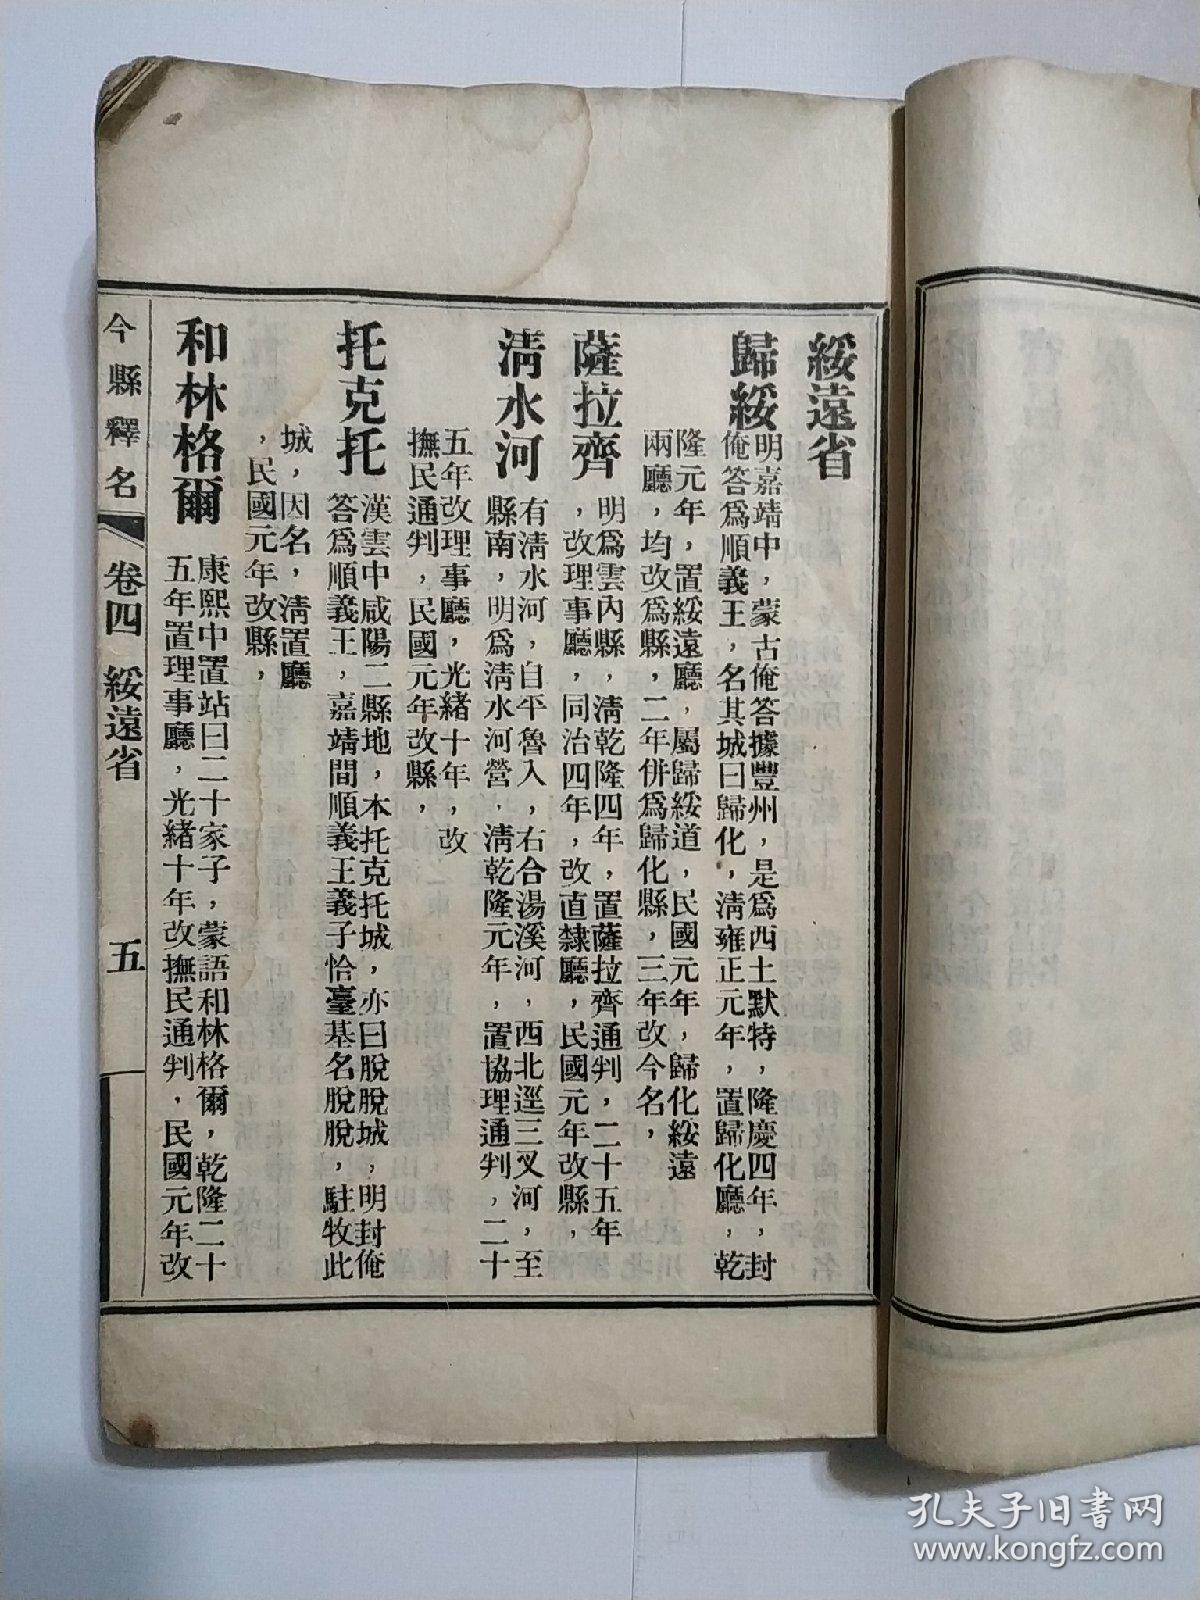 綏遠省
歸綏
明嘉靖中，蒙古俺答據豐州，是爲西土默特，隆慶四年，封
俺答爲順義王，名其城曰歸化，淸雍正元年，置歸化廳，乾
隆元年，置綏遠廳，屬歸綏道，民國元年，歸化綏遠
兩廳，均改爲縣，二年併爲歸化縣，三年改今名，
薩拉齊
明爲雲內縣，淸乾隆四年，置薩拉齊通判，二十五年
，改理事廳，同治四年，改直隸廳，民國元年改縣，
淸水河
有淸水河，自平魯入，右合湯溪河，西北逕三叉河，至
縣南，明爲淸水河營，淸乾隆元年，置協理通判，二十
五年改理事廳，光緒十年，改
撫民通判，民國元年改縣，
托克托
漢雲中咸陽二縣地，本托克托城，亦曰脫脫城，明封俺
答爲順義王，嘉靖間順義王義子恰臺基名脫脫，駐牧此
城，因名，淸置廳
，民國元年改縣，
和林格爾
康熙中置站曰二十家子，蒙語和林格爾，乾隆二十
五年置理事廳，光緒十年改撫民通判，民國元年改
今縣釋名 卷四 綏遠省 五
孔夫子旧书网
www.kongfz.com